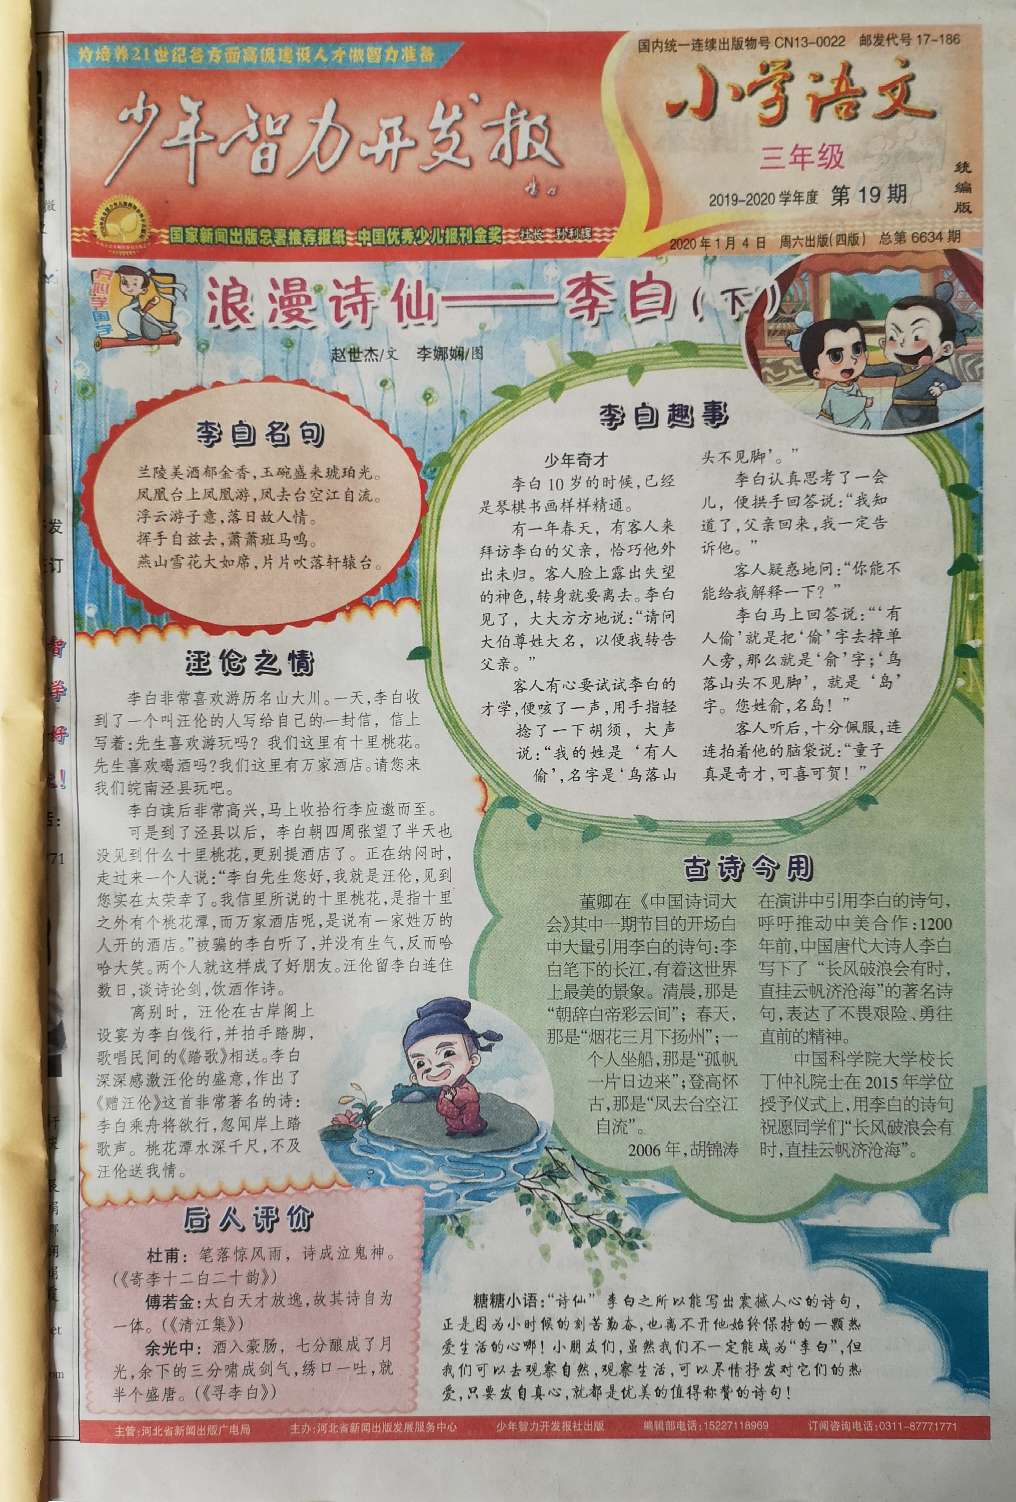 为培养21世纪各方面高级建设人才做智力准备
少年智力开发报
国家新闻出版总署推荐报纸 中国优秀少儿报刊金奖 社长
国内统一连续出版物号 CN13-0022 邮发代号 17-186
小学语文
三年级
统编版
2019-2020 学年度 第 19 期
2020 年 1 月 4 日 周六出版(四版) 总第 6634 期
开心学国学
浪漫诗仙——李白(下)
赵世杰/文 李娜娴/图
李白名句
兰陵美酒郁金香,玉碗盛来琥珀光。
凤凰台上凤凰游,凤去台空江自流。
浮云游子意,落日故人情。
挥手自兹去,萧萧班马鸣。
燕山雪花大如席,片片吹落轩辕台。
李白趣事
少年奇才
李白 10 岁的时候,已经
是琴棋书画样样精通。
有一年春天,有客人来
拜访李白的父亲,恰巧他外
出未归。客人脸上露出失望
的神色,转身就要离去。李白
见了,大大方方地说:“请问
大伯尊姓大名,以便我转告
父亲。”
客人有心要试试李白的
才学,便咳了一声,用手指轻
捻了一下胡须,大声
说:“我的姓是‘有人
偷’,名字是‘鸟落山
头不见脚’。”
李白认真思考了一会
儿,便拱手回答说:“我知
道了,父亲回来,我一定告
诉他。”
客人疑惑地问:“你能不
能给我解释一下?”
李白马上回答说:“‘有
人偷’就是把‘偷’字去掉单
人旁,那么就是‘俞’字;‘鸟
落山头不见脚’,就是‘岛’
字。您姓俞,名岛!”
客人听后,十分佩服,连
连拍着他的脑袋说:“童子
真是奇才,可喜可贺!”
汪伦之情
李白非常喜欢游历名山大川。一天,李白收
到了一个叫汪伦的人写给自己的一封信,信上
写着:先生喜欢游玩吗?我们这里有十里桃花。
先生喜欢喝酒吗?我们这里有万家酒店。请您来
我们皖南泾县玩吧。
李白读后非常高兴,马上收拾行李应邀而至。
可是到了泾县以后,李白朝四周张望了半天也
没见到什么十里桃花,更别提酒店了。正在纳闷时,
走过来一个人说:“李白先生您好,我就是汪伦,见到
您实在太荣幸了。我信里所说的十里桃花,是指十里
之外有个桃花潭,而万家酒店呢,是说有一家姓万的
人开的酒店。”被骗的李白听了,并没有生气,反而哈
哈大笑。两个人就这样成了好朋友。汪伦留李白连住
数日,谈诗论剑,饮酒作诗。
离别时,汪伦在古岸阁上
设宴为李白饯行,并拍手踏脚,
歌唱民间的《踏歌》相送。李白
深深感激汪伦的盛意,作出了
《赠汪伦》这首非常著名的诗:
李白乘舟将欲行,忽闻岸上踏
歌声。桃花潭水深千尺,不及
汪伦送我情。
古诗今用
董卿在《中国诗词大
会》其中一期节目的开场白
中大量引用李白的诗句:李
白笔下的长江,有着这世界
上最美的景象。清晨,那是
“朝辞白帝彩云间”;春天,
那是“烟花三月下扬州”;一
个人坐船,那是“孤帆
一片日边来”;登高怀
古,那是“凤去台空江
自流”。
2006 年,胡锦涛
在演讲中引用李白的诗句,
呼吁推动中美合作:1200
年前,中国唐代大诗人李白
写下了“长风破浪会有时,
直挂云帆济沧海”的著名诗
句,表达了不畏艰险、勇往
直前的精神。
中国科学院大学校长
丁仲礼院士在 2015 年学位
授予仪式上,用李白的诗句
祝愿同学们“长风破浪会有
时,直挂云帆济沧海”。
后人评价
杜甫:笔落惊风雨,诗成泣鬼神。
(《寄李十二白二十韵》)
傅若金:太白天才放逸,故其诗自为
一体。(《清江集》)
余光中:酒入豪肠,七分酿成了月
光,余下的三分啸成剑气,绣口一吐,就
半个盛唐。(《寻李白》)
糖糖小语:“诗仙”李白之所以能写出震撼人心的诗句,
正是因为小时候的刻苦勤奋,也离不开他始终保持的一颗热
爱生活的心哪!小朋友们,虽然我们不一定能成为“李白”,但
我们可以去观察自然,观察生活,可以尽情抒发对它们的热
爱,只要发自真心,就都是优美的值得称赞的诗句!
主管:河北省新闻出版广电局 主办:河北省新闻出版发展服务中心 少年智力开发报社出版 编辑部电话:15227118969 订阅咨询电话:0311-87771771